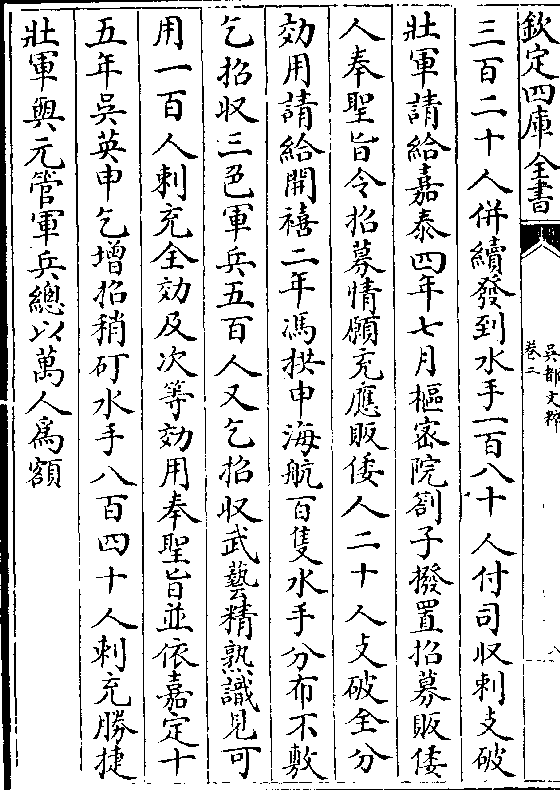 欽定四庫全書
吳都文粹
卷二
三百二十人併續發到水手一百八十人付司収刺攴破
壯軍請給嘉泰四年七月樞宻院劄子撥置招募販倭
人奉聖旨令招募情願充應販倭人二十人攴破全分
効用請給開禧二年馮拱申海航百隻水手分布不敷
乞招収三色軍兵五百人又乞招収武藝精熟識見可
用一百人刺充全効及次等効用奉聖旨並依嘉定十
五年吳英申乞增招稍矴水手八百四十人刺充勝捷
壯軍與元管軍兵總以萬人爲額